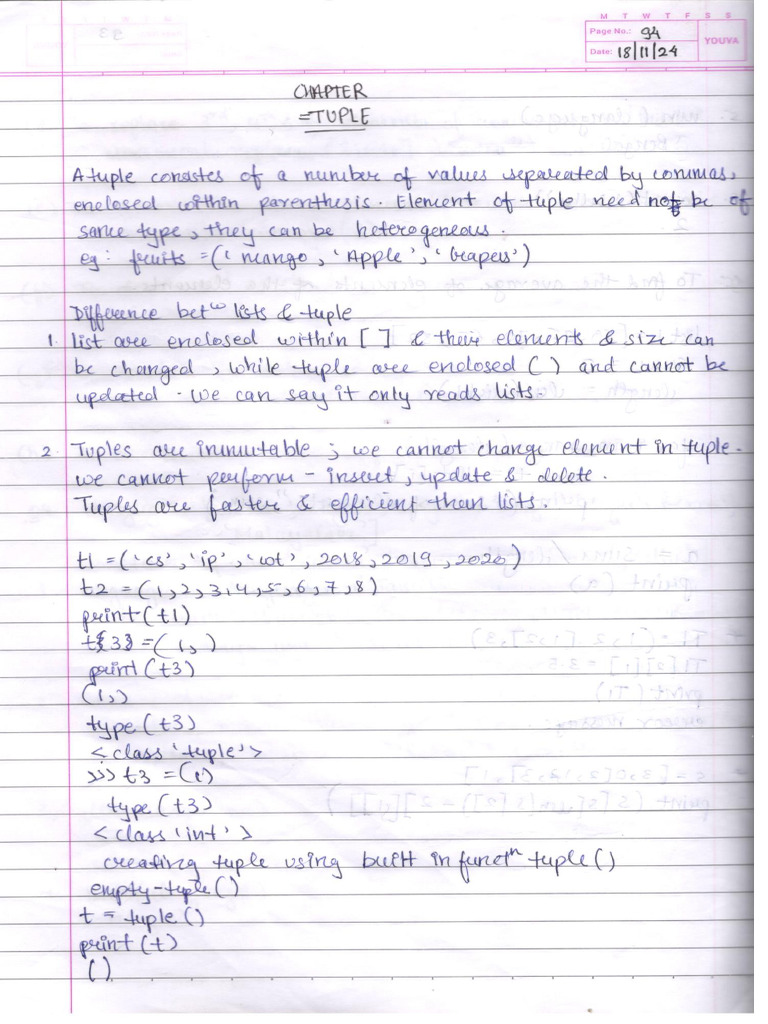 M T W T F S S
Page No.: 94
YOUVA
Date: 18/11/24
CHAPTER
=TUPLE
A tuple consistes of a number of values separeated by commas,
enclosed within parenthesis. Element of tuple need not be of
same type, they can be heterogeneous.
eg: fruits =('mango, 'Apple', 'Grapes')
Difference betn lists & tuple
1. list are enclosed within [ ] & their elements & size can
be changed, while tuple are enclosed ( ) and cannot be
updated. We can say it only reads lists.
2. Tuples are immutable; we cannot change element in tuple.
we cannot perform - insert, update & delete.
Tuples are faster & efficient than lists.
t1 = ('cs', 'ip', 'iot', 2018, 2019, 2020)
t2 = (1,2,3,4,5,6,7,8)
print(t1)
t{3} = (1,)
print(t3)
(1,)
type(t3)
<class 'tuple'>
>>> t3 = (1)
type(t3)
<class 'int'>
creating tuple using built in functn tuple()
empty-tuple()
t = tuple()
print(t)
()